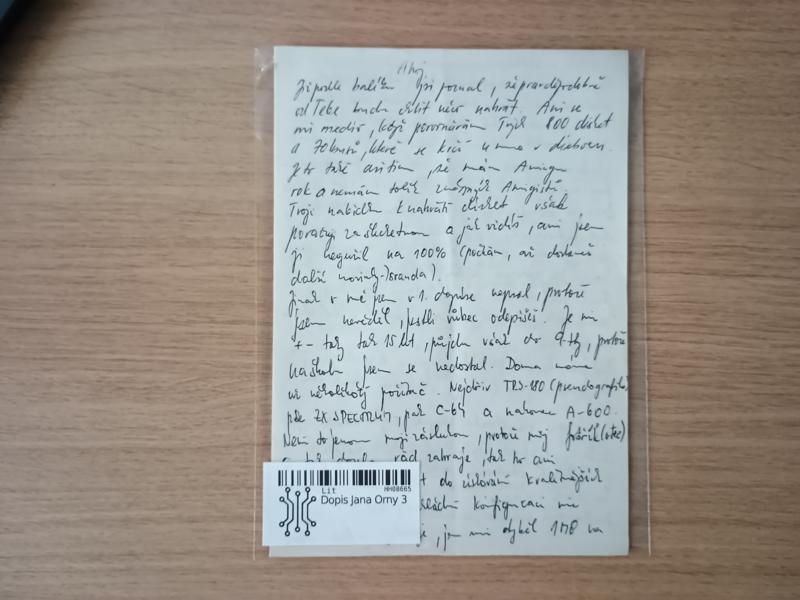 Ahoj
Již podle balíku jsi poznal, že pravděpodobně
od Tebe budu chtít něco nahrát. Ani se
mi nedivíš, když porovnávám Tvých 800 disket
a 70 kusů, které se krčí u mne v diskboxu.
Je to také asi tím, že mám Amigu
rok a nemám tolik známých Amigistů.
Tvoji nabídku k nahrátí disket však
považuji za šlechetnou a jak vidíš, ani jsem
ji nevyužil na 100% (počkám, až dostaneš
další novinky-Sranda).
Jinak v mé jsem v 1. dopise nepsal, protože
jsem nevěděl, jestli vůbec odepíšeš. Je mi
+- taky tak 15 let, půjdu však do 9. tř, protože
na školu jsem se nedostal. Doma máme
už několikátý počítač. Nejdřív TRS-180 (pseudografika)
pak ZX SPECTRUM, pak C-64 a nakonec A-600.
Není to jenom moje zásluha, protože můj fotřík(otec)
rád zahraje, tak ho ani
do získávání kvalitnějších
základní konfiguraci mi
, jen mi chyběl 1MB na
Lit
HH08665
Dopis Jana Orny 3